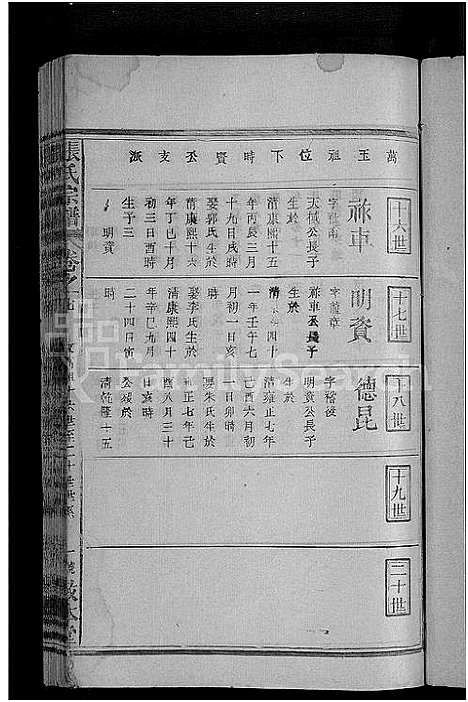 萬玉祖位下時賢公支派
十六世
祢車
天械公長子
生於
清康熙十五
年丙辰三月
十九日戌時
娶郭氏生於
清康熙十六
年丁巳十月
初三日酉時
生子三
明賁
時
十七世
明賁
字龍章
祢車公長子
生於
清
四十
一年壬午七
月初一日
時
娶李氏生於
清康熙四十
年辛巳九月
二十四日寅
時
十八世
德昆
字裕後
明賁公長子
清雍正七年
己酉六月初
一日卯時
娶朱氏生於
雍正七年己
酉八月三十
日亥時
公歿於
清乾隆十五
十九世
二十世
張氏宗譜
卷之
敦本堂
FamilySearch